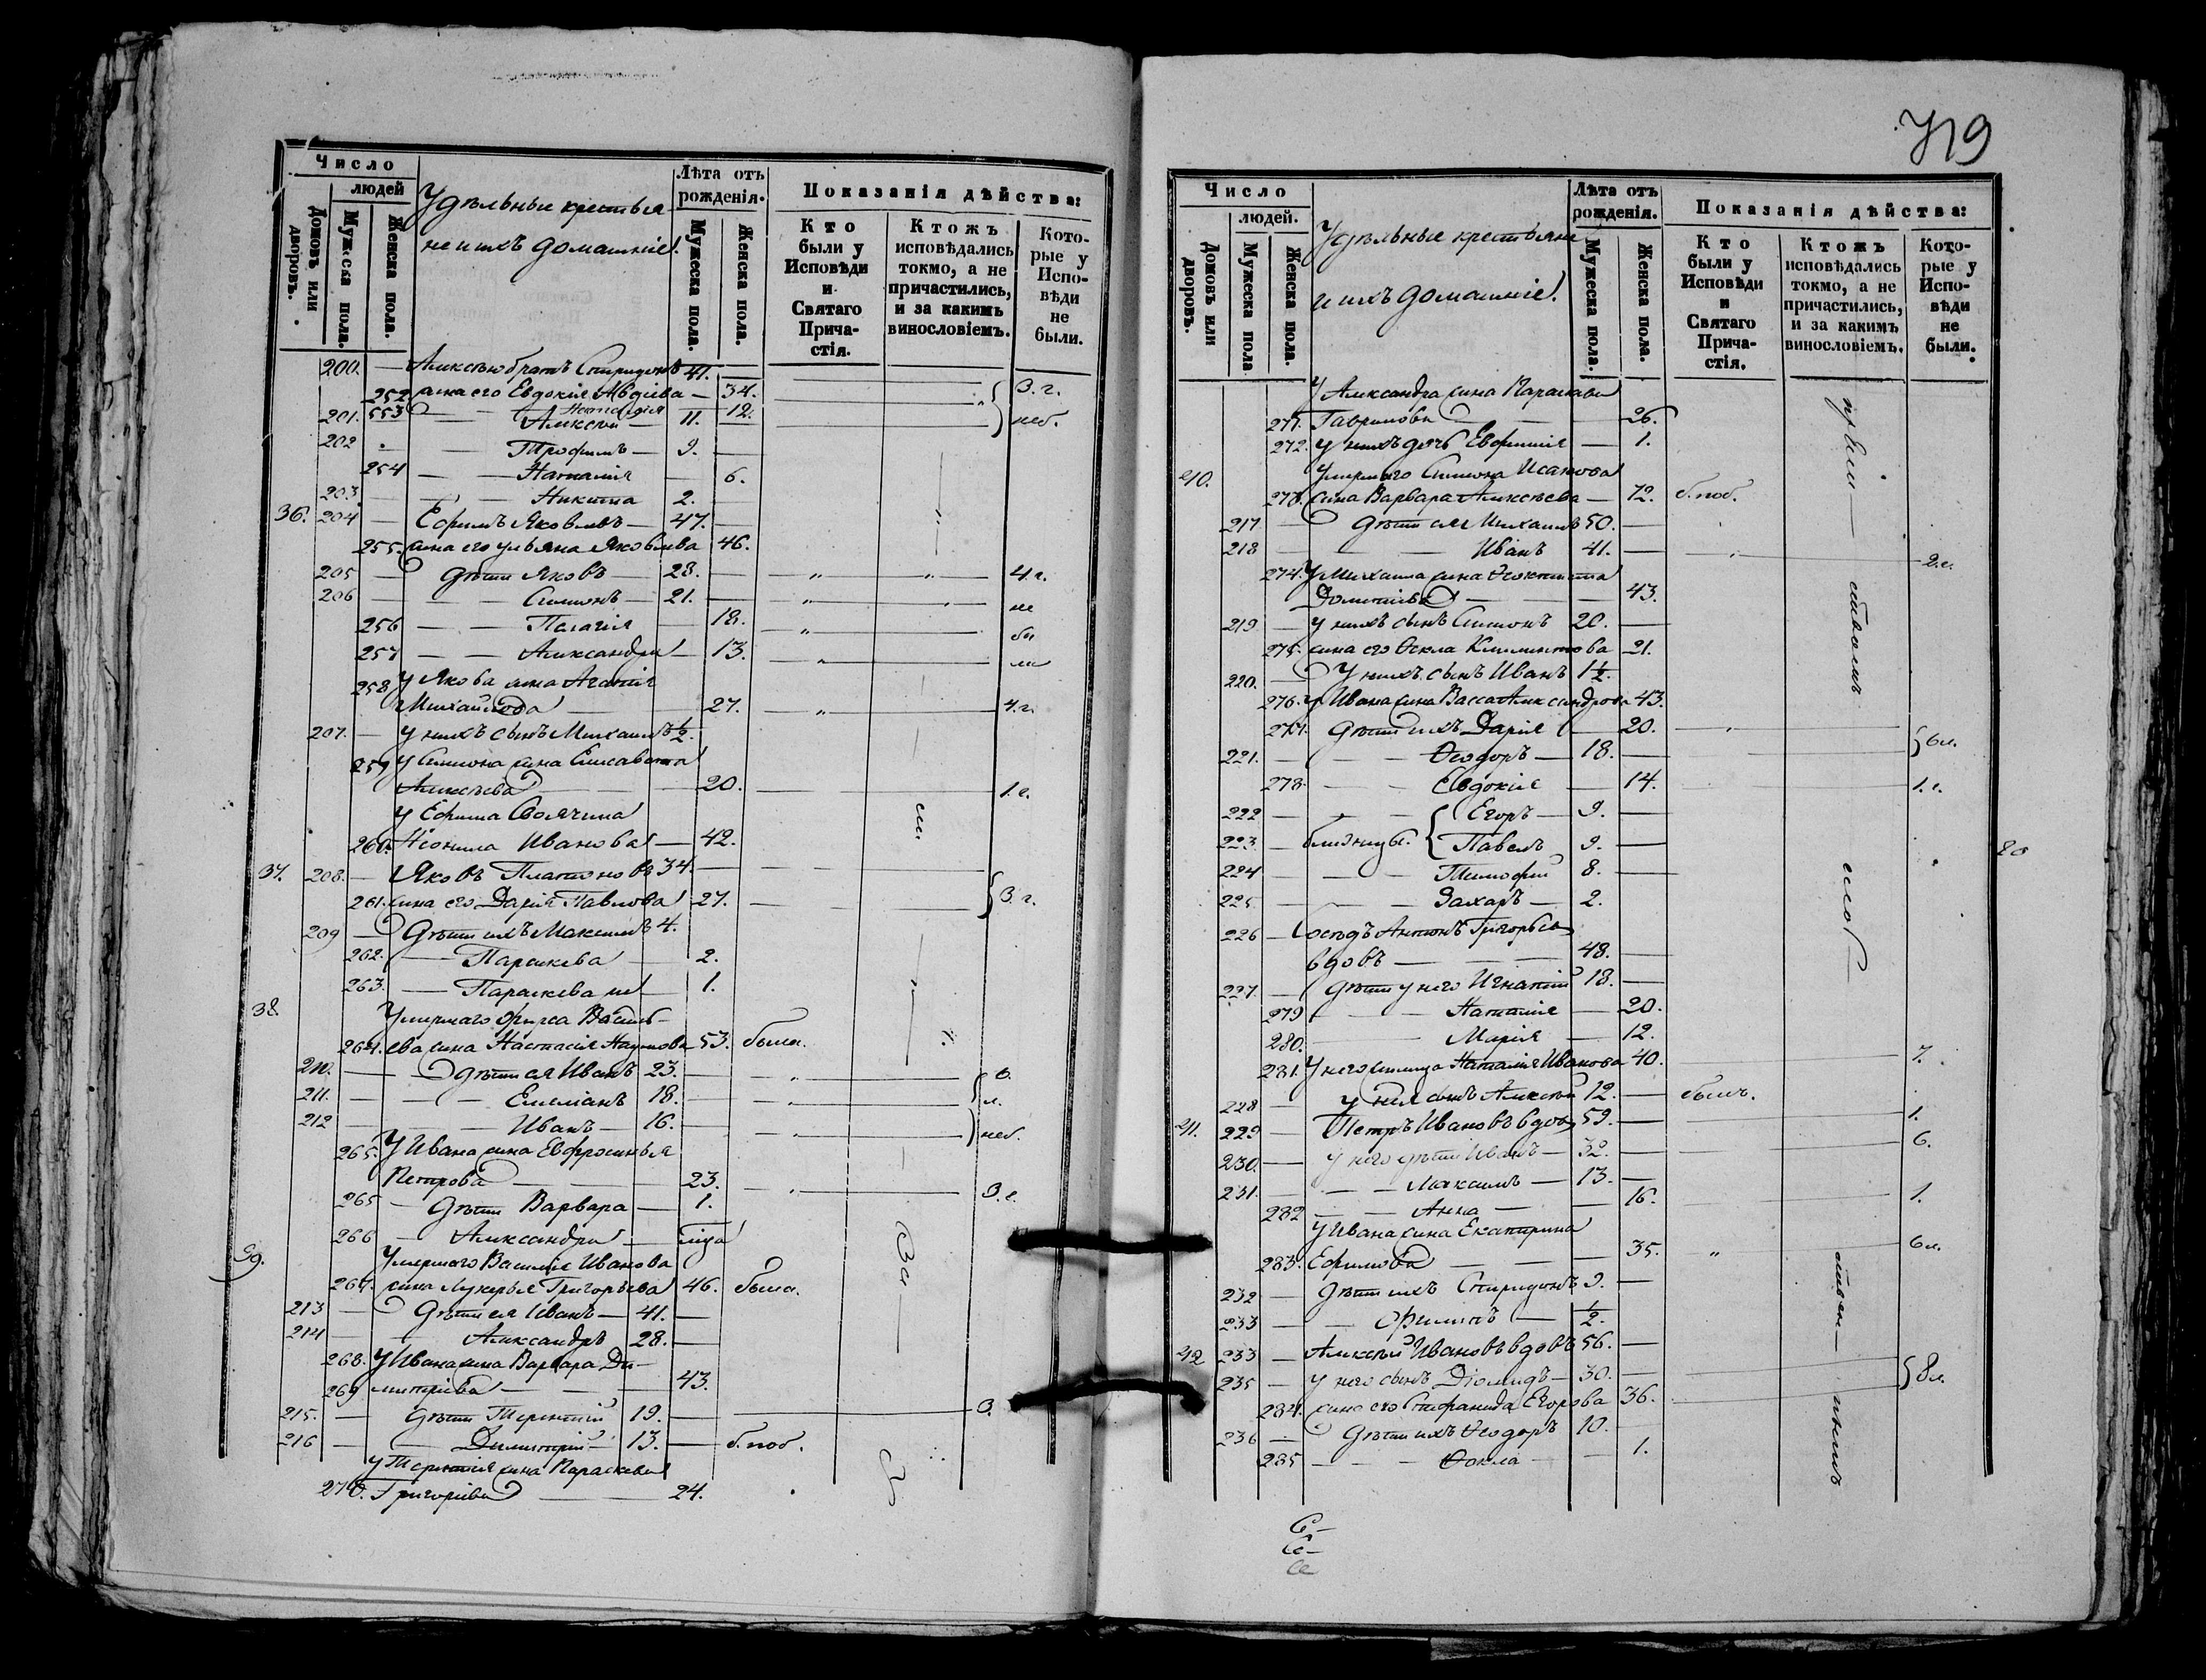 Число
людей
Домовъ или дворовъ.
Мужеска пола.
Женска пола.
Удѣльные крестья
не и ихъ домашніе.
Лѣта отъ рожденія.
Мужеска пола.
Женска пола.
Показанія дѣйства:
Кто были у Исповѣди и Святаго Прича-стія.
Ктожъ исповѣдались токмо, а не причастились, и за какимъ винословіемъ.
Кото-рые у Испо-вѣди не были.
200. — Алексѣю братъ Спиридонъ 41. —
252 жена его Евдокія Авдіева — 34. 3. г.
553 Наталія — 12.
201. Алексѣй — 11. неб.
202 — Трофимъ — 9.
254 — — Наталія — 6.
203 — — Никита 2.
36. 204 — Ефимъ Яковлевъ — 47. —
255. жена его Ульяна Яковлева 46.
205 — дѣти Яковъ — 28. — 4. г.
206 — — Симонъ — 21. — не
256 — — Пелагія — 18. бы
257 — — Александра — 13. ли
258 У Якова жена Агафія
Михайлова — 27. 4. г.
207. — у нихъ сынъ Михаилъ ½.
259 У Симона жена Елисавета
Алексѣева — 20. 1. г.
У Ефима своячина
260. Неонила Иванова — 42.
37. 208. — Яковъ Платоновъ 34. —
261. жена его Дарія Павлова 27. 3. г.
209 — дѣти ихъ Максимъ 4.
262. — Параскева — 2.
263. — Параскева — 1.
38. Умершаго Фирса Василь-
264. ева жена Настасія Наумова 53. была.
210. — дѣти ея Иванъ 23. — 6.
211. — — Емеліанъ 18. — л.
212 — — Иванъ — 16. — неб.
265. У Ивана жена Евфросинья
Петрова — 23. 3. г.
265 — дѣти Варвара — 1.
266 — Александра —
39. Умершаго Василія Иванова
267. жена Лукерья Григорьева 46. была.
213 — дѣти ея Иванъ — 41. —
214 — Александръ 28. —
268. У Ивана жена Варвара Ди-
269 митріева — — 43.
215. — дѣти Терентій 19. — 3.
216 — — Димитрій — 13. — б. поб.
У Терентія жена Параскева
270. Григоріева — 24.
719
Число
людей.
Домовъ или дворовъ.
Мужеска пола
Женска пола.
Удѣльные крестьяне
и ихъ домашніе.
Лѣта отъ рожденія.
Мужеска пола.
Женска пола.
Показанія дѣйства:
Кто были у Исповѣди и Святаго Прича-стія.
Ктожъ исповѣдались токмо, а не причастились, и за какимъ винословіемъ.
Кото-рые у Испо-вѣди не были.
У Александра жена Параскева
271. Гаврилова — 26.
272. у нихъ дочь Евфимія — 1.
40. Умершаго Симона Исакова
273. жена Варвара Алексѣева — 72. б. поб.
217 — дѣти ея Михаилъ 50. —
218 — — Иванъ 41. — 2. г.
274. У Михаила жена Ѳеоктиста
Дометіева — 43.
219 — у нихъ сынъ Симонъ 20. —
275. жена его Ѳекла Климентова 21.
220. — У нихъ сынъ Иванъ 1½.
276. У Ивана жена Васса Александрова 43.
277. дѣти ихъ Дарія — 20. 6 л.
221. — — Ѳеодоръ — 18. —
278. — — Евдокія — 14. 1. г.
222 — — Егоръ — 9. —
223 — близнецы. Павелъ 9. —
224 — — Тимофей 8. —
225 — — Захаръ — 2.
226 — Сосѣдъ Антонъ Григорьевъ
вдовъ — — 48. —
227. — дѣти у него Игнатій 18. —
279 — — Наталія — 20.
280. — Марія — 12.
281. У него Наталія Иванова 40. 7.
228 — у нея сынъ Алексѣй 12. — былъ.
41. 229 — Петръ Ивановъ вдовъ 59. — 1.
230. — у него дѣти Иванъ — 32. — 6.
231. — — Максимъ — 13. —
282 — — Анна — 16. 1.
У Ивана жена Екатерина
283. Ефимова — — 35. 6 л.
232 — дѣти ихъ Спиридонъ 9. —
233 — — Филипъ — ½.
42 233 — Алексѣй Ивановъ вдовъ 56. —
235 — у него сынъ Діомидъ — 30. — 8 л.
284. жена его Стефанида Егорова 36.
236 — дѣти ихъ Ѳеодоръ 10.
285 — — Ѳекла — 1.